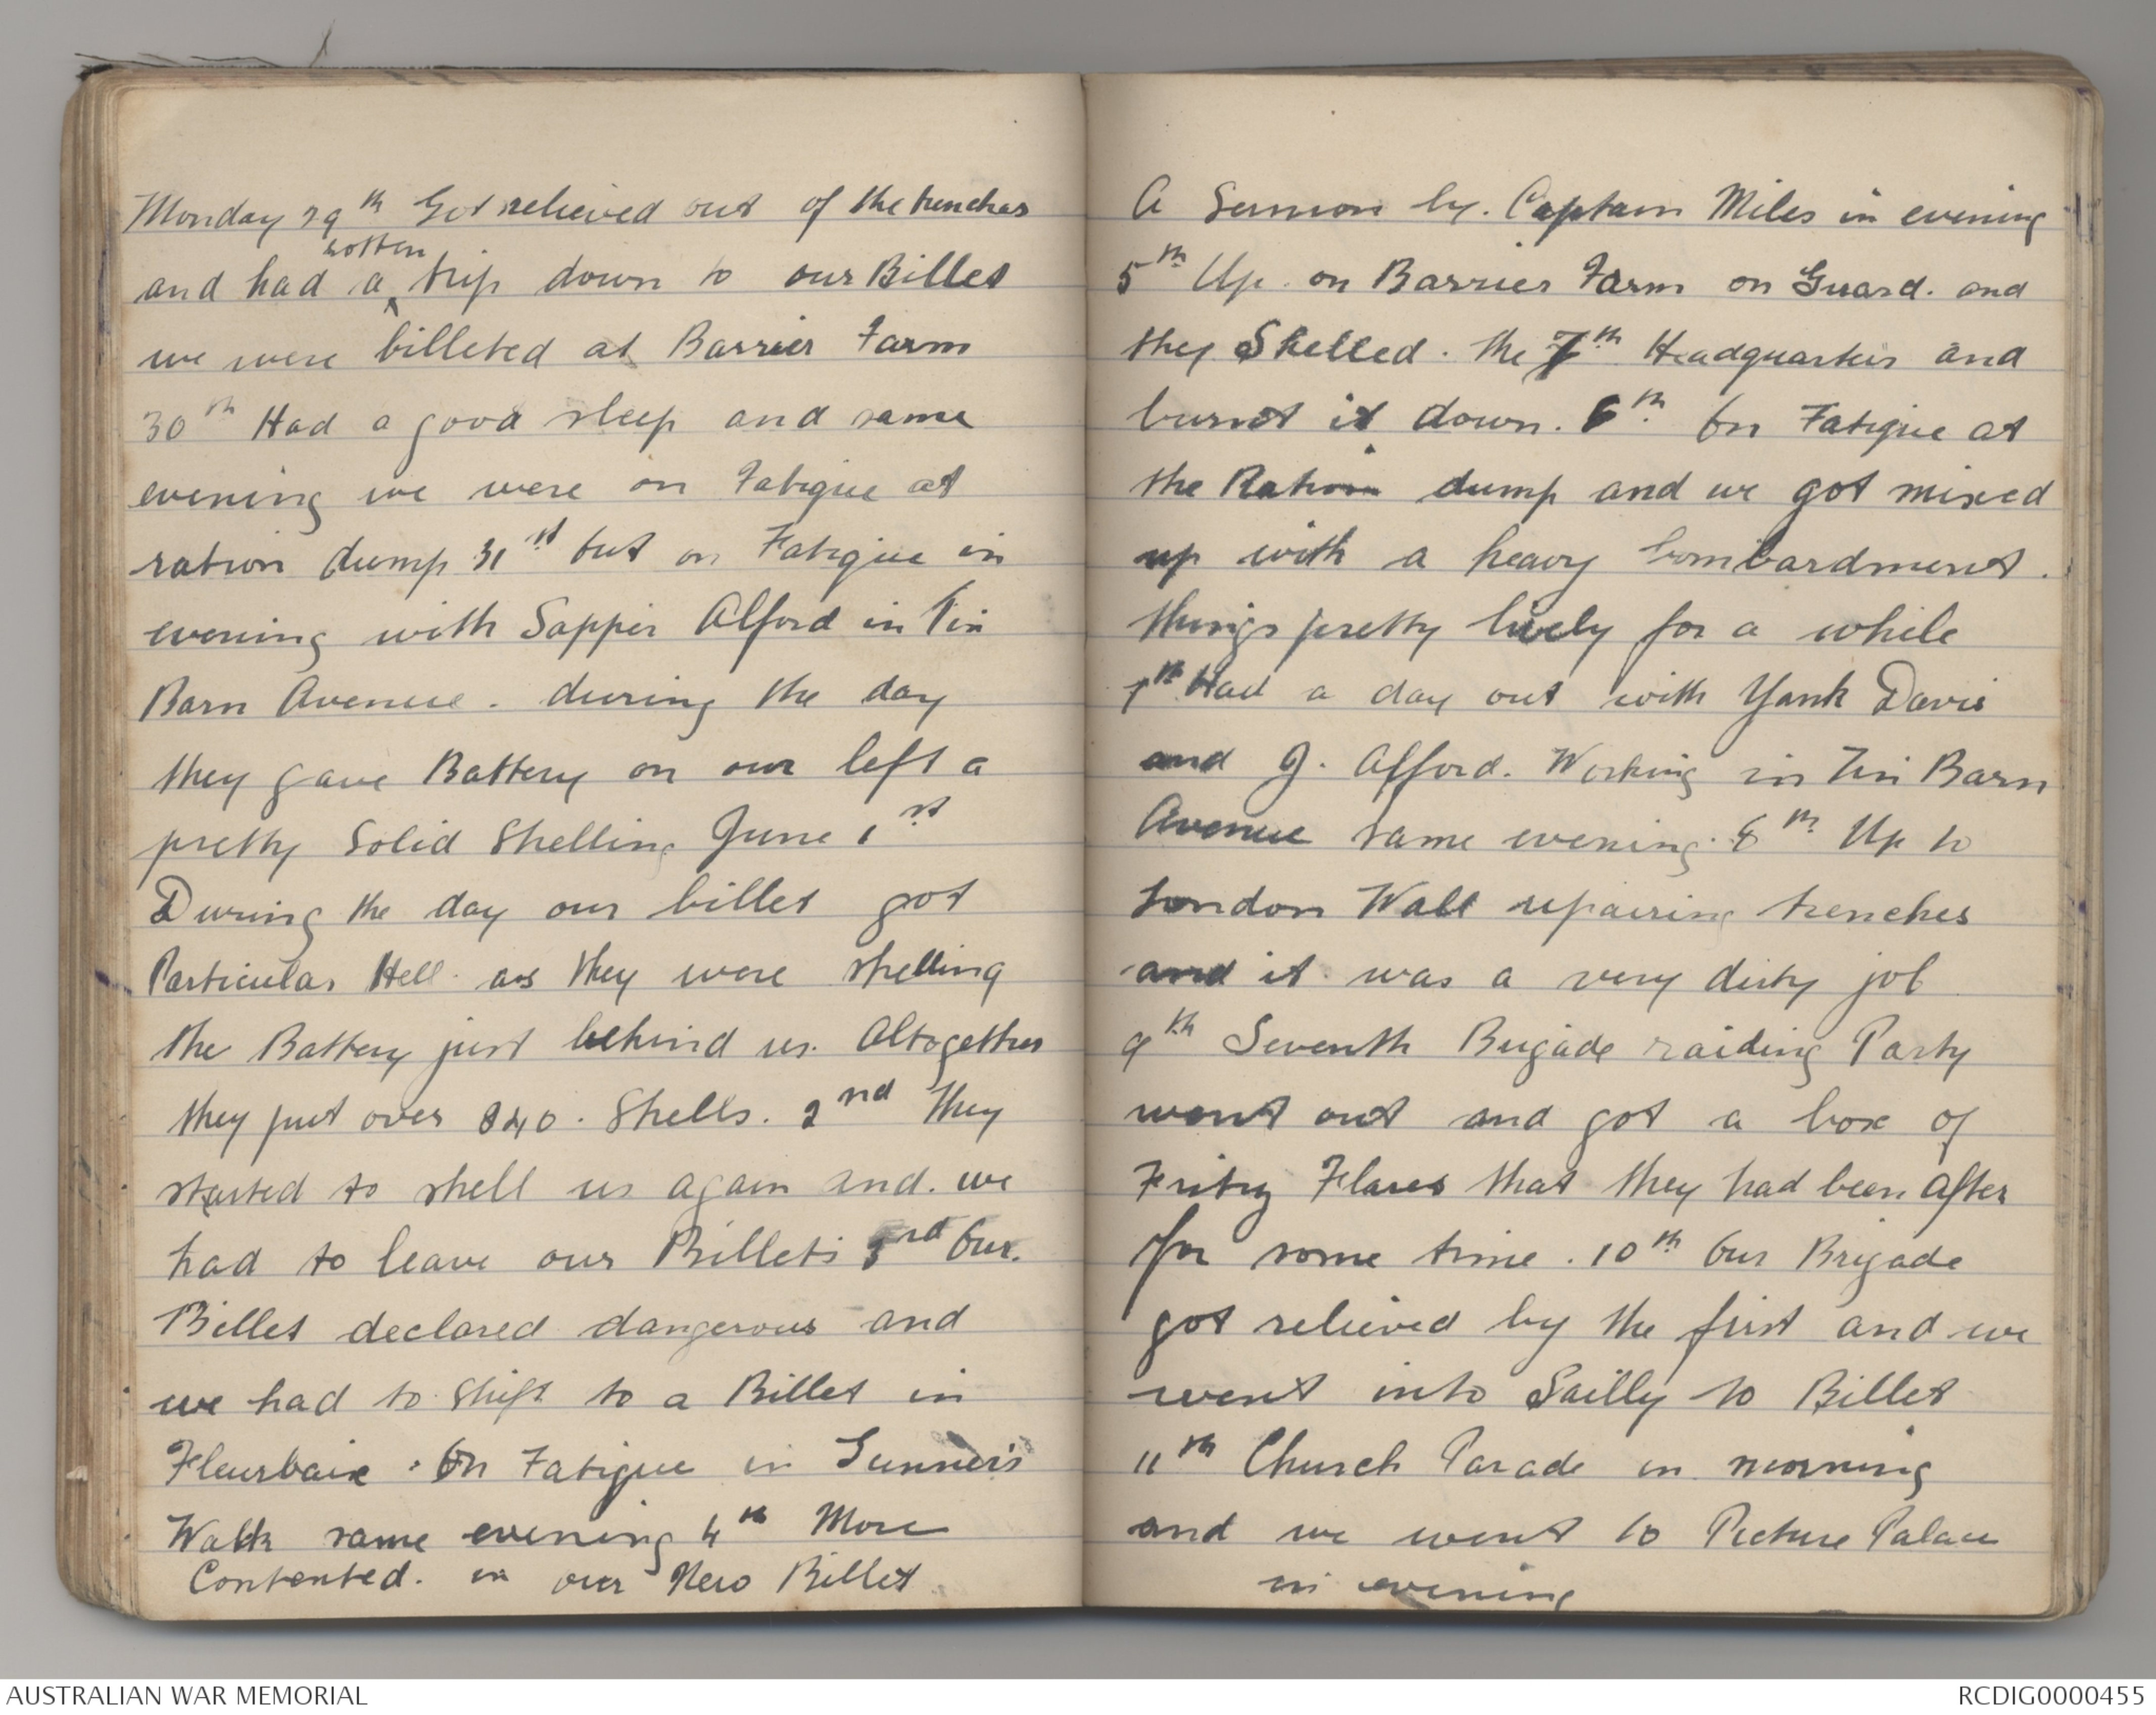 Monday 29th Got relieved out of the trenches
and had a rotten trip down to our Billet
we were billeted at Barrier Farm
30th Had a good sleep and same
evening we were on Fatigue at
ration dump 31st Out on Fatigue in
evening with Sapper Alford in Tin
Barn Avenue. during the day
they gave Battery on our left a
pretty Solid Shelling June 1st
During the day our billet got
Particular Hell. as they were shelling
the Battery just behind us. Altogether
they put over 840. Shells. 2nd They
started to shell us again and. we
had to leave our Billets 3rd Our.
Billet declared dangerous and
we had to shift to a Billet in
Fleurbaix. On Fatigue in Gunner's
Walk same evening 4th More
Contented. in our New Billet
A Sermon by. Captain Miles in evening
5th Up. on Barrier Farm on Guard. and
they Shelled. the 7th Headquarters and
burnt it down. 6th. On Fatigue at
the Ration dump and we got mixed
up with a heavy bombardment.
things pretty lively for a while
7th Had a day out with Yank Davis
and J. Alford. Working in Tin Barn
Avenue same evening. 8th Up to
London Wall repairing trenches
and it was a very dirty job
9th Seventh Brigade raiding Party
went out and got a box of
Fritzy Flares that they had been after
for some time. 10th Our Brigade
got relieved by the first and we
went into Sailly to Billet
11th Church Parade in morning
and we went to Picture Palace
in evening
AUSTRALIAN WAR MEMORIAL
RCDIG0000455